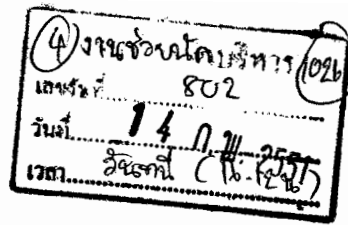 (4) งานช่วยนักบริหาร 1026
เลขรับที่ 802
วันที่ 14 ก.พ. 2551
เวลา